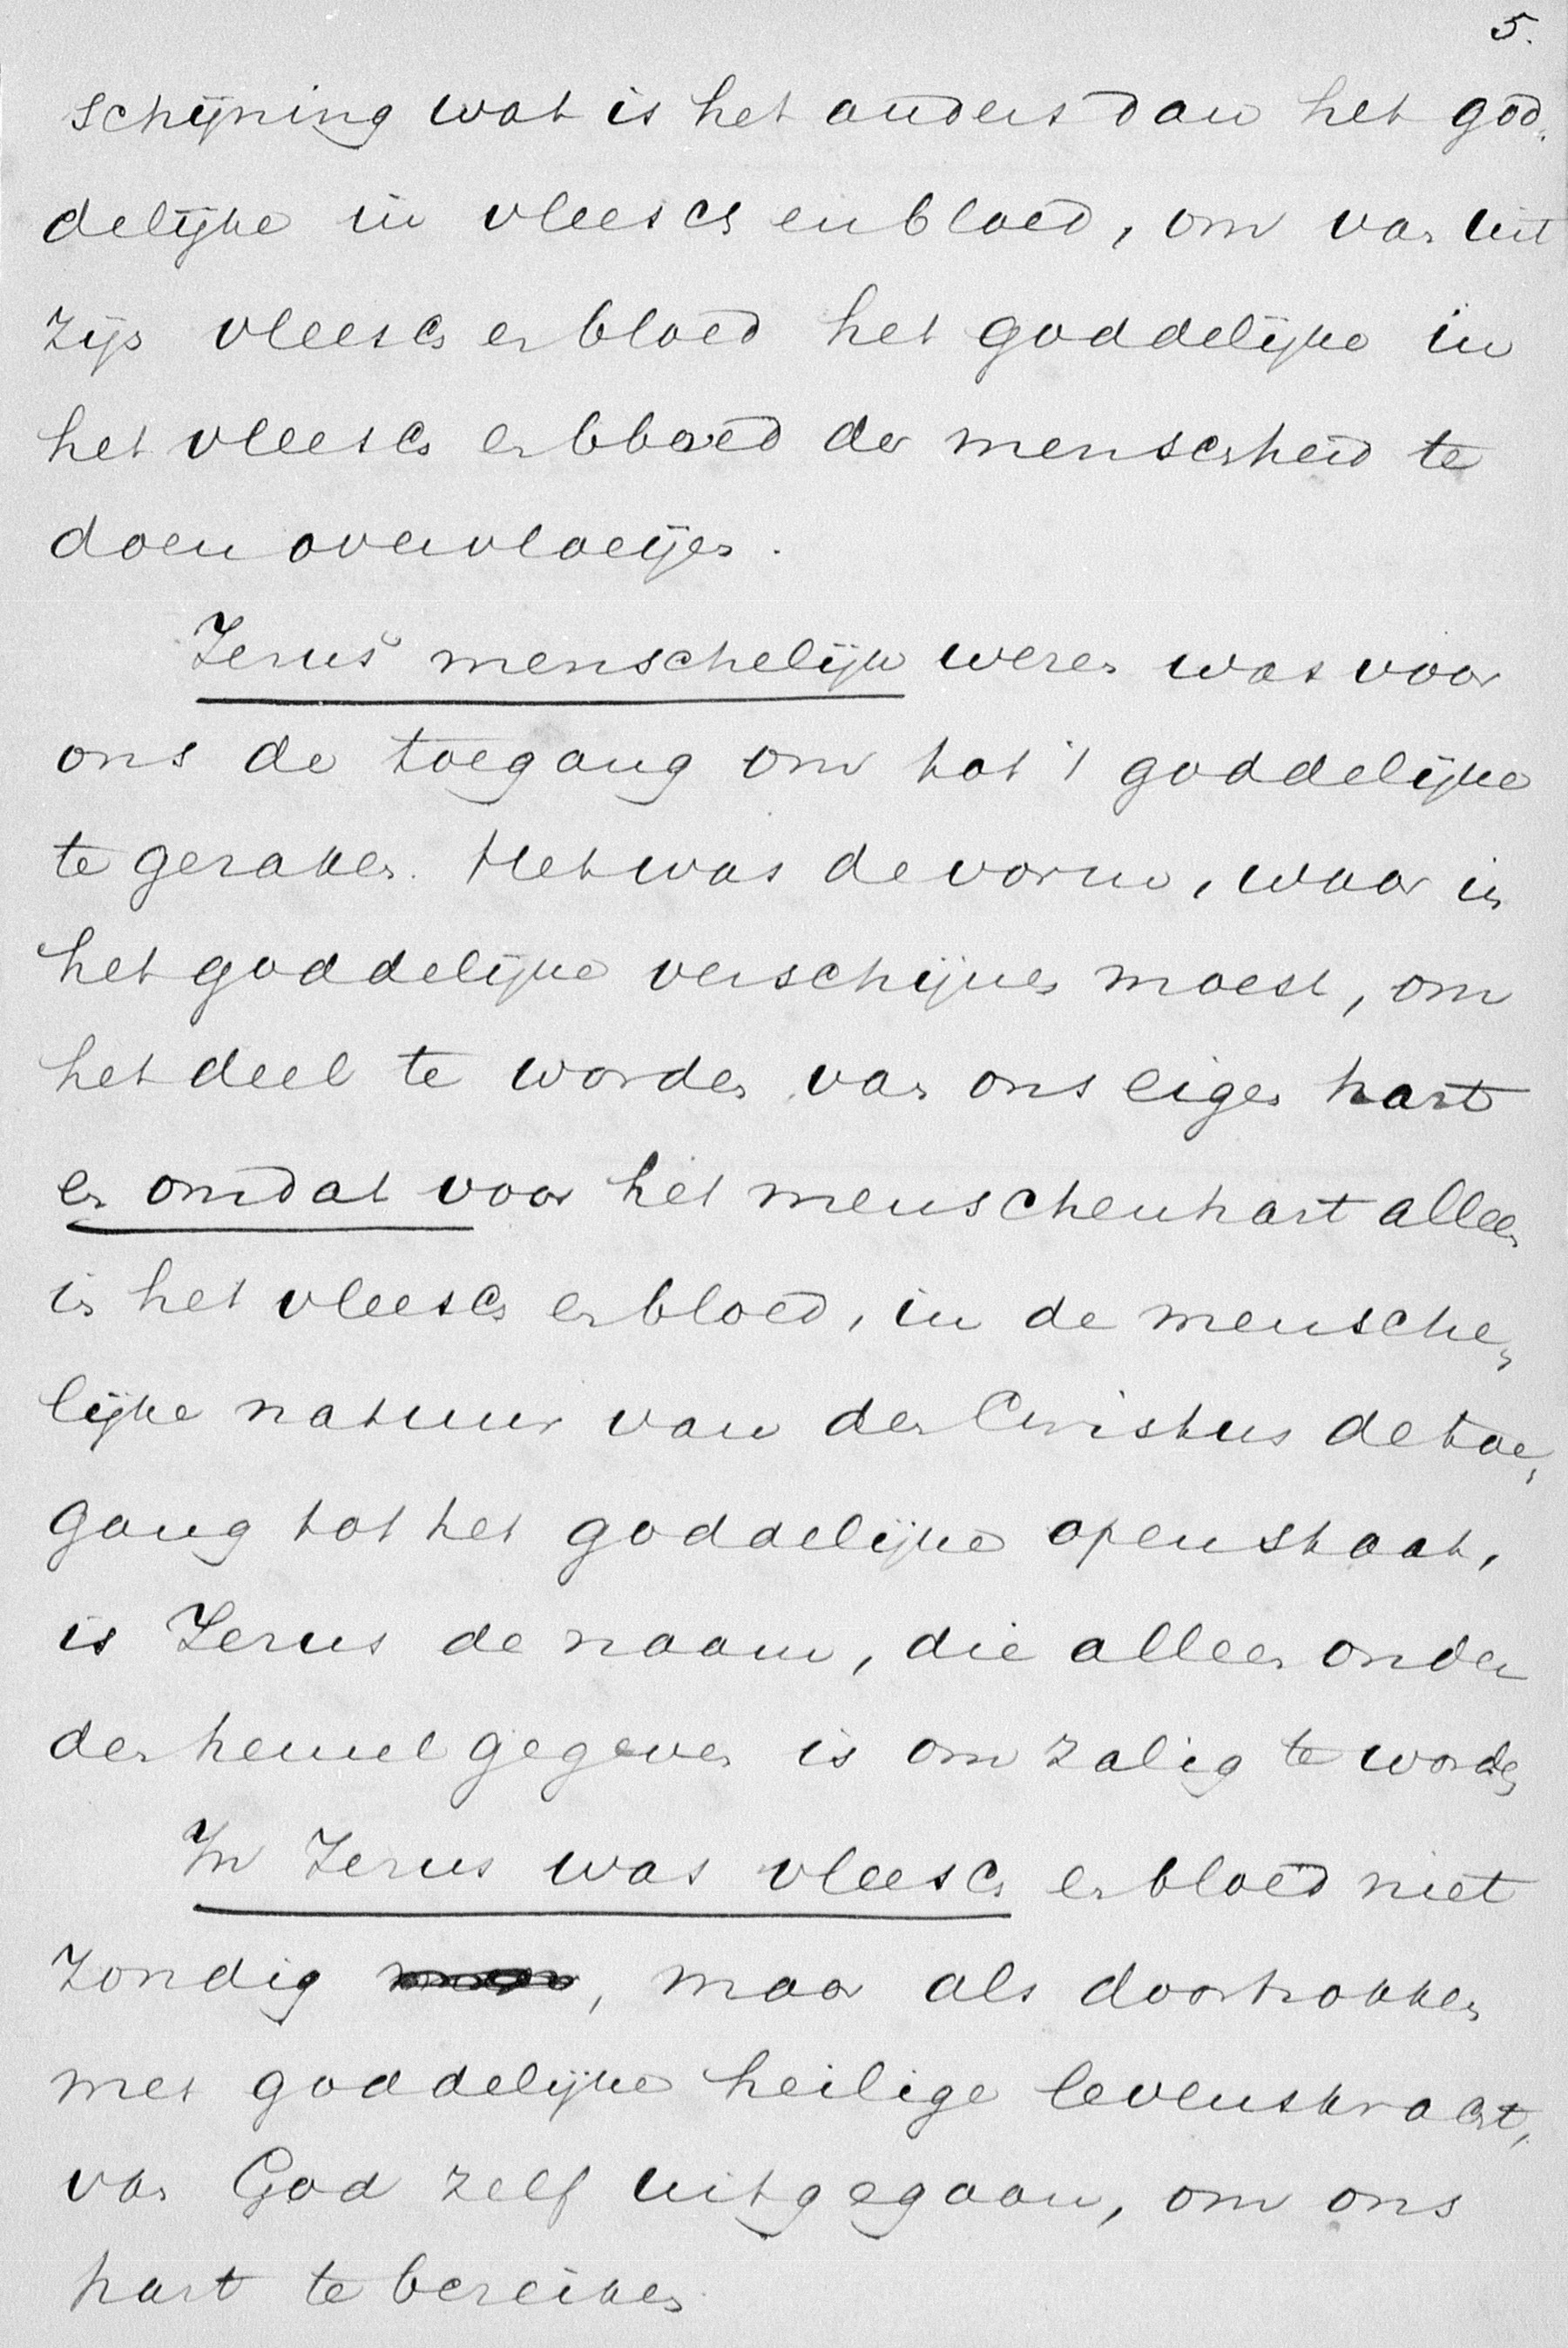 5.
schijning wat is het anders dan het god„
delijke in vleesch en bloed, om van uit
zijn vleesch en bloed het goddelijke in
het vleesch en bloed der menschheid te
doen overvloeijen.
Jezus' menschelijk wezen was voor
ons de toegang om tot 't goddelijke
te geraken. Het was de vorm, waar in
het goddelijke verschijnen moest, om
het deel te worden van ons eigen hart
en omdat voor het menschenhart alleen
in het vleesch en bloed, in de mensche„
lijke natuur van den Christus de toe„
gang tot het goddelijke openstaat,
is Jezus de naam, die alleen onder
den hemel gegeven is om zalig te worden
In Jezus was vleesch en bloed niet
zondig, maar als doortrokken
met goddelijke heilige levenskracht,
van God zelf uitgegaan, om ons
hart te bereiken.